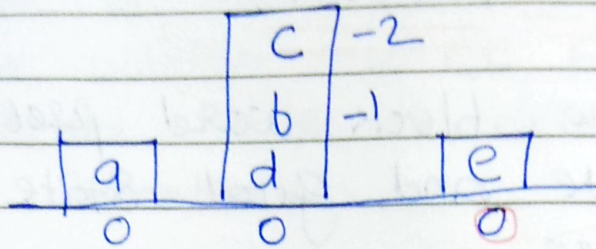 c -2
b -1
a d e
0 0 0